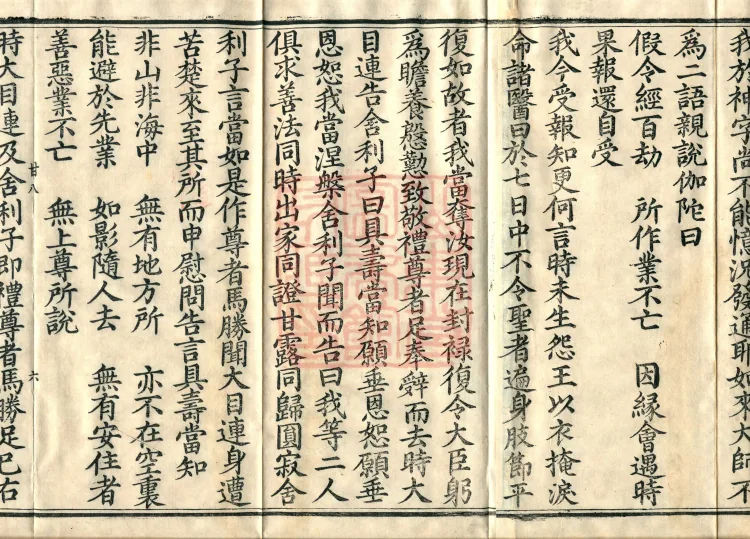 我於神字尚不能憶況發通耶如來大師不
爲二語親說伽陀曰
假令經百劫　所作業不亡　因緣會遇時
果報還自受
我今受報知更何言時未生怨王以衣掩淚
命諸醫曰於七日中不令聖者遍身肢節平
復如故者我當奪汝現在封祿復令大臣躬
爲瞻養慇懃致敬禮尊者足奉辭而去時大
目連告舍利子曰具壽當知願垂恩恕願垂
恩恕我當涅槃舍利子聞而告曰我等二人
俱求善法同時出家同證甘露同歸圓寂舍
利子言當如是作尊者馬勝聞大目連身遭
苦楚來至其所而申慰問告言具壽當知
非山非海中　無有地方所　亦不在空裏
能避於先業　如影隨人去　無有安住者
善惡業不亡　無上尊所說
廿八　六
時大目連及舍利子即禮尊者馬勝足已右